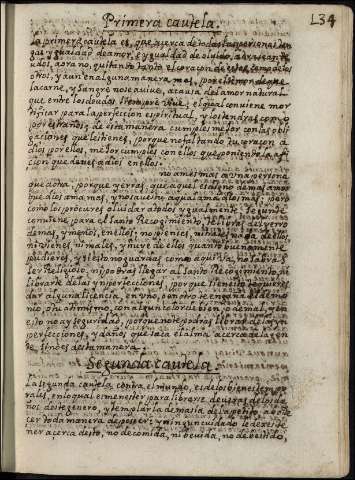 L34
Primera cautela.
La primera cautela es, que acerca de todas las personas ten-
gas ygualdad de amor, e ygualdad de olvido, ahora sean de-
udos, ahora no, quitando el coraçon de estos, tanto como de los
otros, y aun en alguna manera mas, por el temor de que
la carne, y sangre no se avive, a causa del amor natural
que entre los deudos siempre vive; el qual conviene mor
tificar para la perfeccion espiritual, y los tendras como
por estraños; y de esta manera cumples mejor con las obli-
gaciones que les tienes, porque no faltando tu coraçon a
dios por ellos, mejor cumples con ellos que poniendo la afi-
cion que debes a dios en ellos.
no ames mas a una persona
que a otra, porque yerras; que aquel es digno de mas amor
que dios ama mas, y no sabes tu a qual ama dios mas; pero
como los procures olvidar a todos ygualmente, segun te
conviene para el santo Recogimiento,
de mas, y menos, en ellos; no pienses nada de ellos,
ni bienes, ni males, y huye de ellos quanto buenamente
pudieres, y si esto no guardas como aqui va, no sabras
ser Religioso, ni podras llegar al santo Recogimiento, ni
librarte de las ymperfecciones, porque si en esto te quieres
dar alguna licencia, en uno, o en otro te engaña el demo-
nio, o tu a ti mismo, con algun color de bien, o de mal, y en
esto no ay seguridad, porque no te podras librar de las ym-
perfecciones, y daños que saca el alma acerca de las gen-
tes, sino es de esta manera.
Segunda cautela.
La segunda cautela, contra el mundo, es de los bienes tempo-
rales, en lo qual es menester para librarse de veras de los da-
ños de este genero, y templar la demasia del apetito, aborre
cer toda manera de posseer; y ningun cuidado le dexes te-
ner acerca desto, no de comida, ni bevida, no de bestido,